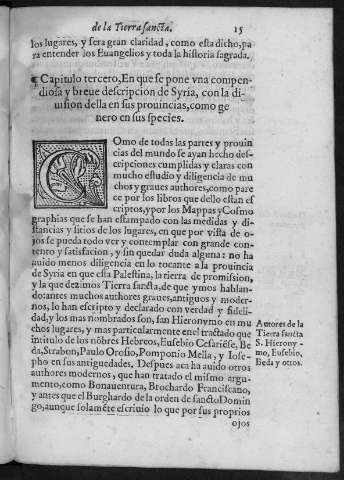 de la Tierra sancta. 15
los lugares, y sera gran claridad, como esta dicho, pa
ra entender los Euangelios y toda la historia sagrada.
¶ Capitulo tercero, En que se pone vna compen-
diosa y breue descripcion de Syria, con la di-
uision della en sus prouincias, como ge
nero en sus species.
COmo de todas las partes y prouin
cias del mundo se ayan hecho des-
cripciones cumplidas y claras con
mucho estudio y diligencia de mu
chos y graues authores, como pare
ce por los libros que dello estan es
criptos, y por los Mappas y Cosmo
graphias que se han estampado con las medidas y di-
stancias y sitios de los lugares, en que por vista de o-
jos se pueda todo ver y contemplar con grande con-
tento y satisfacion, y sin quedar duda alguna: no ha
auido menos diligencia en lo tocante a la prouincia
de Syria en que esta Palestina, la tierra de promission,
y la que dezimos Tierra sancta, de que ymos hablan-
do: antes muchos authores graues, antiguos y moder-
nos, lo han escripto y declarado con verdad y fideli-
dad, y los mas nombrados son, san Hieronymo en mu
chos lugares, y mas particularmente en el tractado que
intitulo de los nõbres Hebreos, Eusebio Cesariẽse, Be
da, Strabon, Paulo Orosio, Pomponio Mella, y Iose-
pho en sus antiguedades. Despues aca ha auido otros
authores modernos, que han tratado el mismo argu-
mento, como Bonauentura, Brochardo Franciscano,
y antes que el Burghardo de la orden de sancto Domin
go, aunque solamẽte escriuio lo que por sus proprios
ojos
Autores de la
Tierra sancta
S. Hierony-
mo, Eusebio,
Beda y otros.